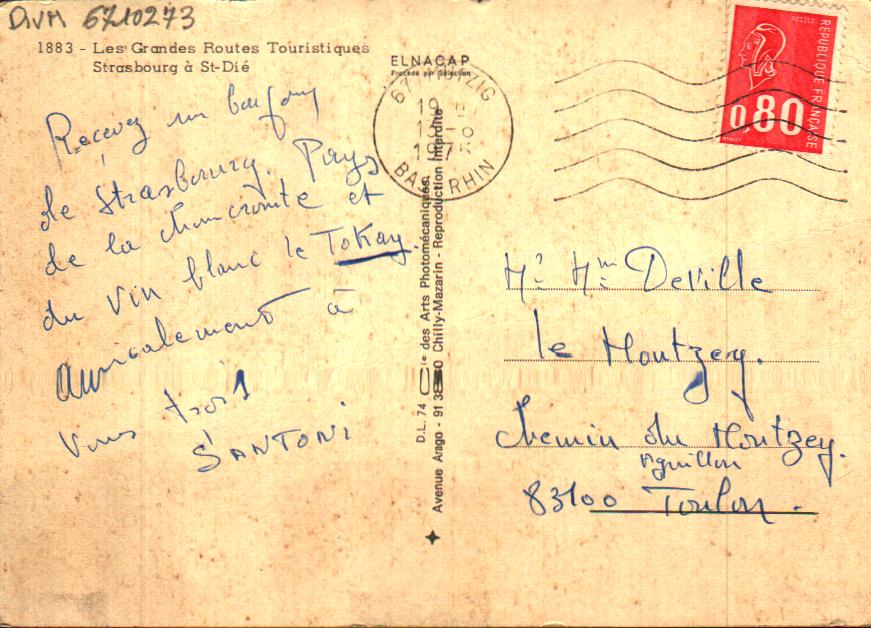 DIVM 6710273
1883 - Les Grandes Routes Touristiques
Strasbourg à St-Dié
Recevez un bonjour
de Strasbourg. Pays
de la choucroute et
du vin blanc le Tokay.
Amicalement à
Vous trois
SANTONI
ELNACAP
Procédé par Sélection
67 MUTZIG
19
197
BAS RHIN
D.L. 74 Cie des Arts Photomécaniques,
Avenue Arago - 91380 Chilly-Mazarin - Reproduction interdite
POSTES
RÉPUBLIQUE FRANÇAISE
0,80
Mr Mme Deville
le Montzey.
Chemin du Montzey.
Aguillon
83100 Toulon.